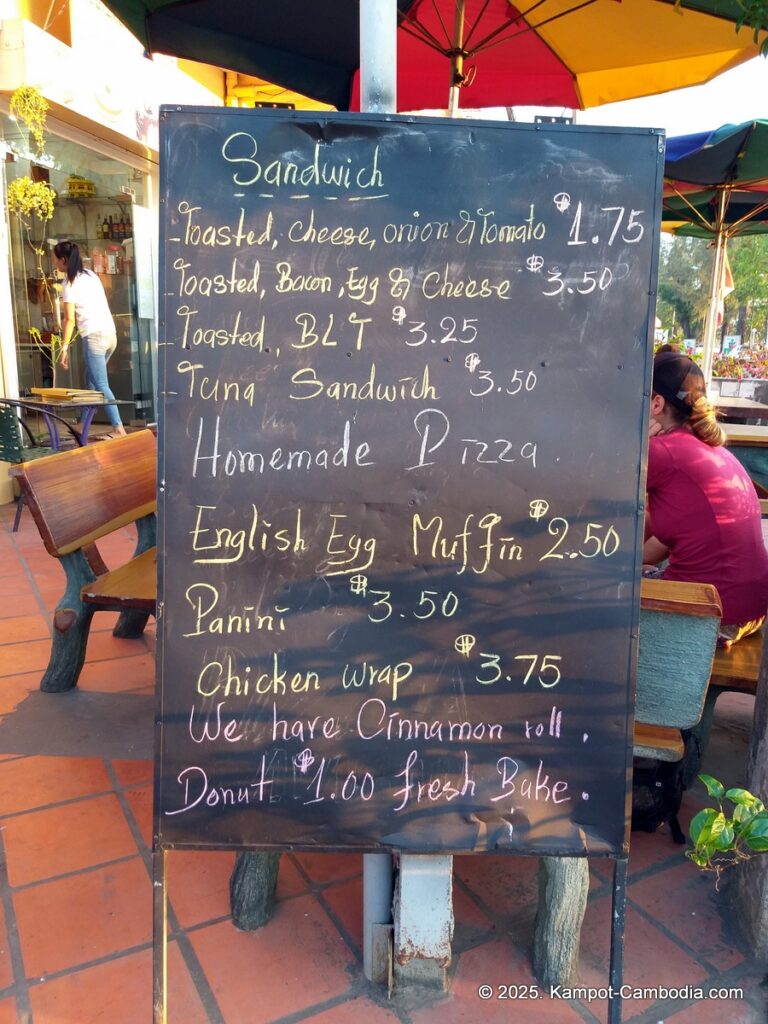 Sandwich
- Toasted, cheese, onion & Tomato $1.75
- Toasted, Bacon, Egg & Cheese $3.50
- Toasted, BLT $3.25
- Tuna Sandwich $3.50
Homemade Pizza.
English Egg Muffin $2.50
Panini $3.50
Chicken wrap $3.75
We have Cinnamon roll.
Donut $1.00 fresh Bake.
© 2025. Kampot-Cambodia.com